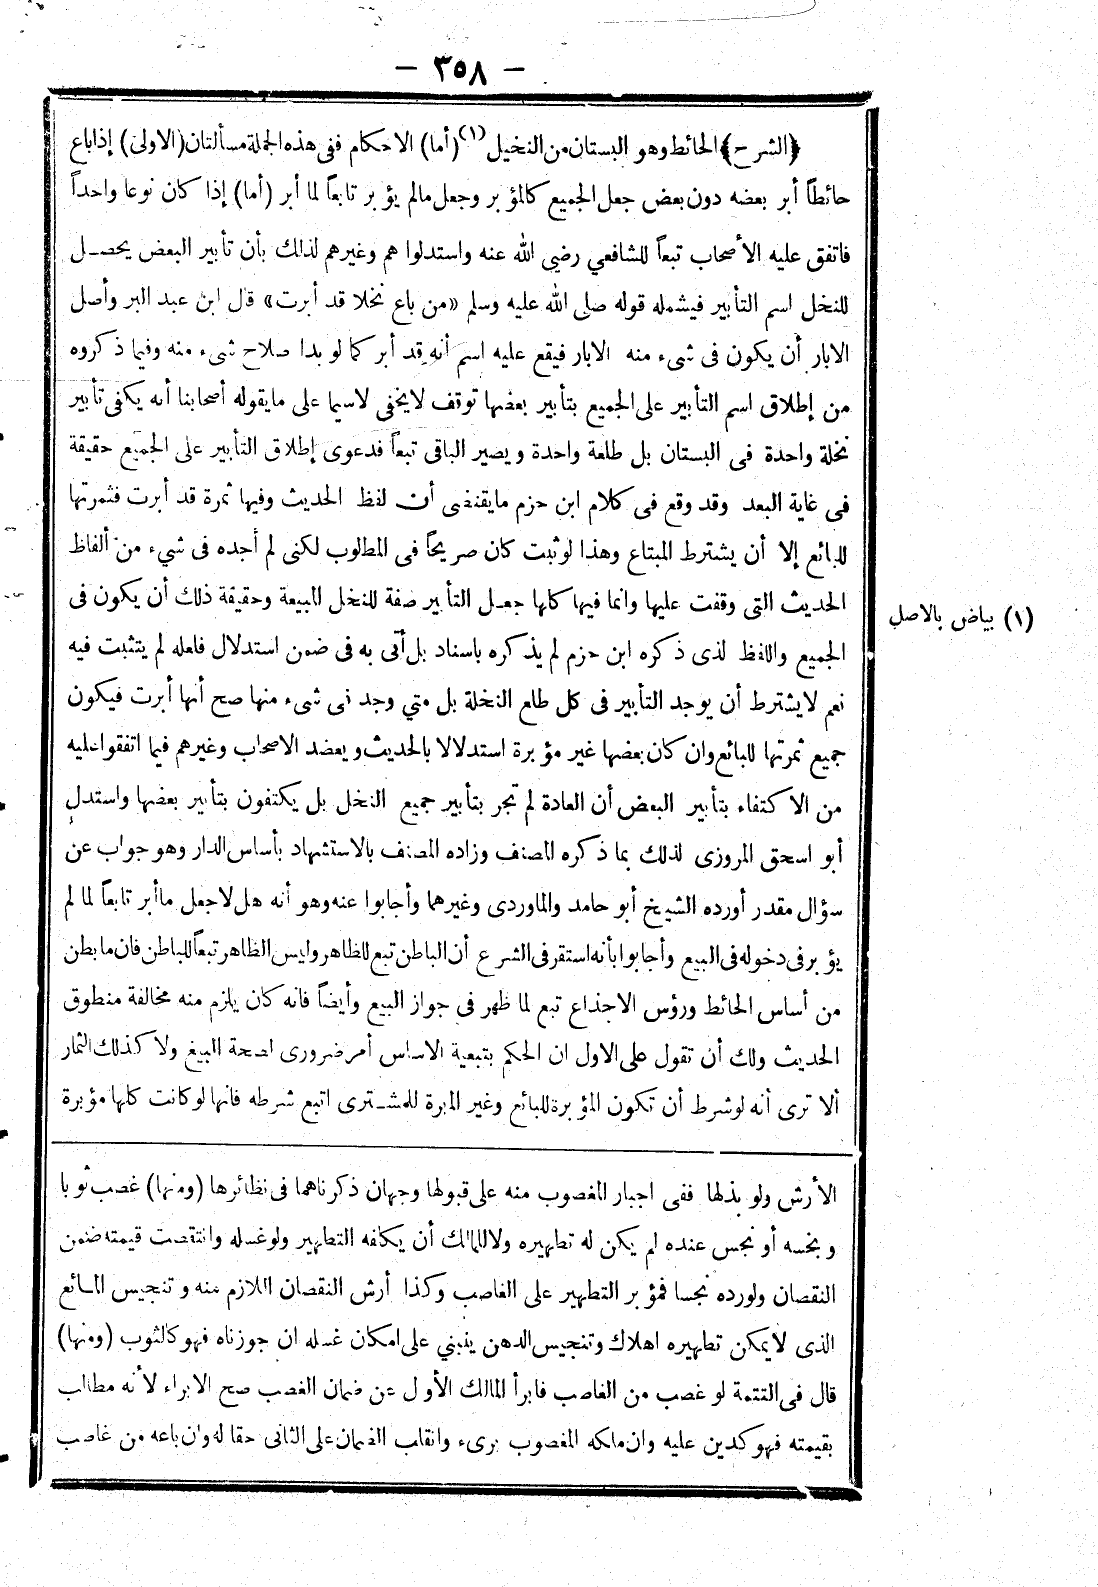 — ٣٥٨ —
﴿الشرح﴾ الحائط وهو البستان من النخيل (١) (أما) الاحكام ففى هذه الجملة مسألتان (الاولى) إذا باع
حائطاً أبر بعضه دون بعض جعل الجميع كالمؤبر وجعل مالم يؤبر تابعاً لما أبر (أما) إذا كان نوعا واحداً
فاتفق عليه الأصحاب تبعاً للشافعي رضى الله عنه واستدلوا هم وغيرهم لذلك بأن تأبير البعض يحصل
للنخل اسم التأبير فيشمله قوله صلى الله عليه وسلم «من باع نخلا قد أبرت» قال ابن عبد البر وأصل
الابار أن يكون فى شىء منه الابار فيقع عليه اسم أنه قد أبر كما لو بدا صلاح شىء منه وفيما ذكروه
من إطلاق اسم التأبير على الجميع بتأبير بعضها توقف لايخفى لاسيما على مايقوله أصحابنا أنه يكفى تأبير
نخلة واحدة فى البستان بل طلعة واحدة ويصير الباقى تبعاً فدعوى إطلاق التأبير على الجميع حقيقة
فى غاية البعد وقد وقع فى كلام ابن حزم مايقتضى أن لفظ الحديث وفيها ثمرة قد أبرت فثمرتها
للبائع إلا أن يشترط المبتاع وهذا لو ثبت كان صريحاً فى المطلوب لكنى لم أجده فى شيء من ألفاظ
الحديث التى وقفت عليها وانما فيها كلها جعل التأبير صفة للنخل المبيعة وحقيقة ذلك أن يكون فى
(١) بياض بالاصل
الجميع واللفظ لذى ذكره ابن حزم لم يذكره باسناد بل أتى به فى ضمن استدلال فلعله لم يتثبت فيه
نعم لايشترط أن يوجد التأبير فى كل طلع النخلة بل متي وجد فى شىء منها صح أنها أبرت فيكون
جميع ثمرتها للبائع وان كان بعضها غير مؤبرة استدلالا بالحديث ويعضد الاصحاب وغيرهم فيما اتفقوا عليه
من الاكتفاء بتأبير البعض أن العادة لم تجر بتأبير جميع النخل بل يكتفون بتأبير بعضها واستدل
أبو اسحق المروزى لذلك بما ذكره المصنف وزاده المصنف بالاستشهاد بأساس الدار وهو جواب عن
سؤال مقدر أورده الشيخ أبو حامد والماوردى وغيرهما وأجابوا عنه وهو أنه هل لا جعل ما أبر تابعاً لما لم
يؤبر فى دخوله فى البيع وأجابوا بأنه استقر فى الشرع أن الباطن تبع للظاهر وليس الظاهر تبعاً للباطن فان مابطن
من أساس الحائط ورؤس الاجذاع تبع لما ظهر فى جواز البيع وأيضاً فانه كان يلزم منه مخالفة منطوق
الحديث ولك أن تقول على الاول ان الحكم بتبعية الاساس أمر ضرورى لصحة البيغ ولا كذلك الثمار
ألا ترى أنه لو شرط أن تكون المؤبرة للبائع وغير المبرة للمشترى اتبع شرطه فانها لو كانت كلها مؤبرة
الأرش ولو بذلها ففى اجبار المغصوب منه على قبولها وجهان ذكرناهما فى نظائرها (ومنها) غصب ثوبا
وبخسه أو نجس عنده لم يكن له تطهيره ولا للمالك أن يكلفه التطهير ولو غسله وانتقصت قيمته ضمن
النقصان ولورده نجسا فمؤبر التطهير على الغاصب وكذا أرش النقصان اللازم منه وتنجيس المائع
الذى لايمكن تطهيره اهلاك وتنجيس الدهن ينبني على امكان غسله ان جوزناه فهو كالثوب (ومنها)
قال فى التتمة لو غصب من الغاصب فابرأ المالك الأول عن ضمان الغصب صح الابراء لأنه مطالب
بقيمته فهو كدين عليه وان ملكه المغصوب برىء وانقلب الضمان على الثانى حقا له وان باعه من غاصب